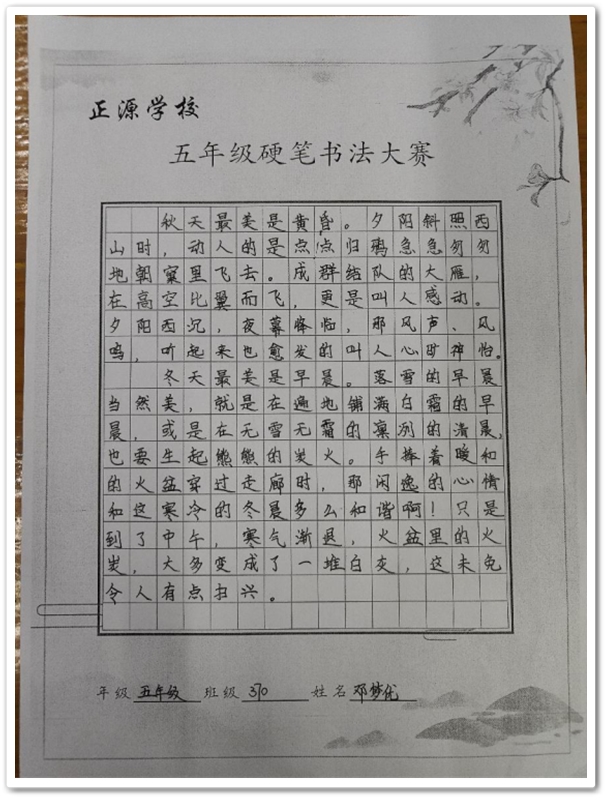 正源学校
五年级硬笔书法大赛
秋天最美是黄昏。夕阳斜照西
山时，动人的是点点归鸦急急匆匆
地朝窠里飞去。成群结队的大雁，
在高空比翼而飞，更是叫人感动。
夕阳西沉，夜幕降临，那风声、风
鸣，听起来也愈发的叫人心旷神怡。
冬天最美是早晨。落雪的早晨
当然美，就是在遍地铺满白霜的早
晨，或是在无雪无霜的凛冽的清晨，
也要生起熊熊的炭火。手捧着暖和
的火盆穿过走廊时，那闲逸的心情
和这寒冷的冬晨多么和谐啊！只是
到了中午，寒气渐退，火盆里的火
炭，大多变成了一堆白灰，这未免
令人有点扫兴。
年级 五年级 班级 370 姓名 邓梦优